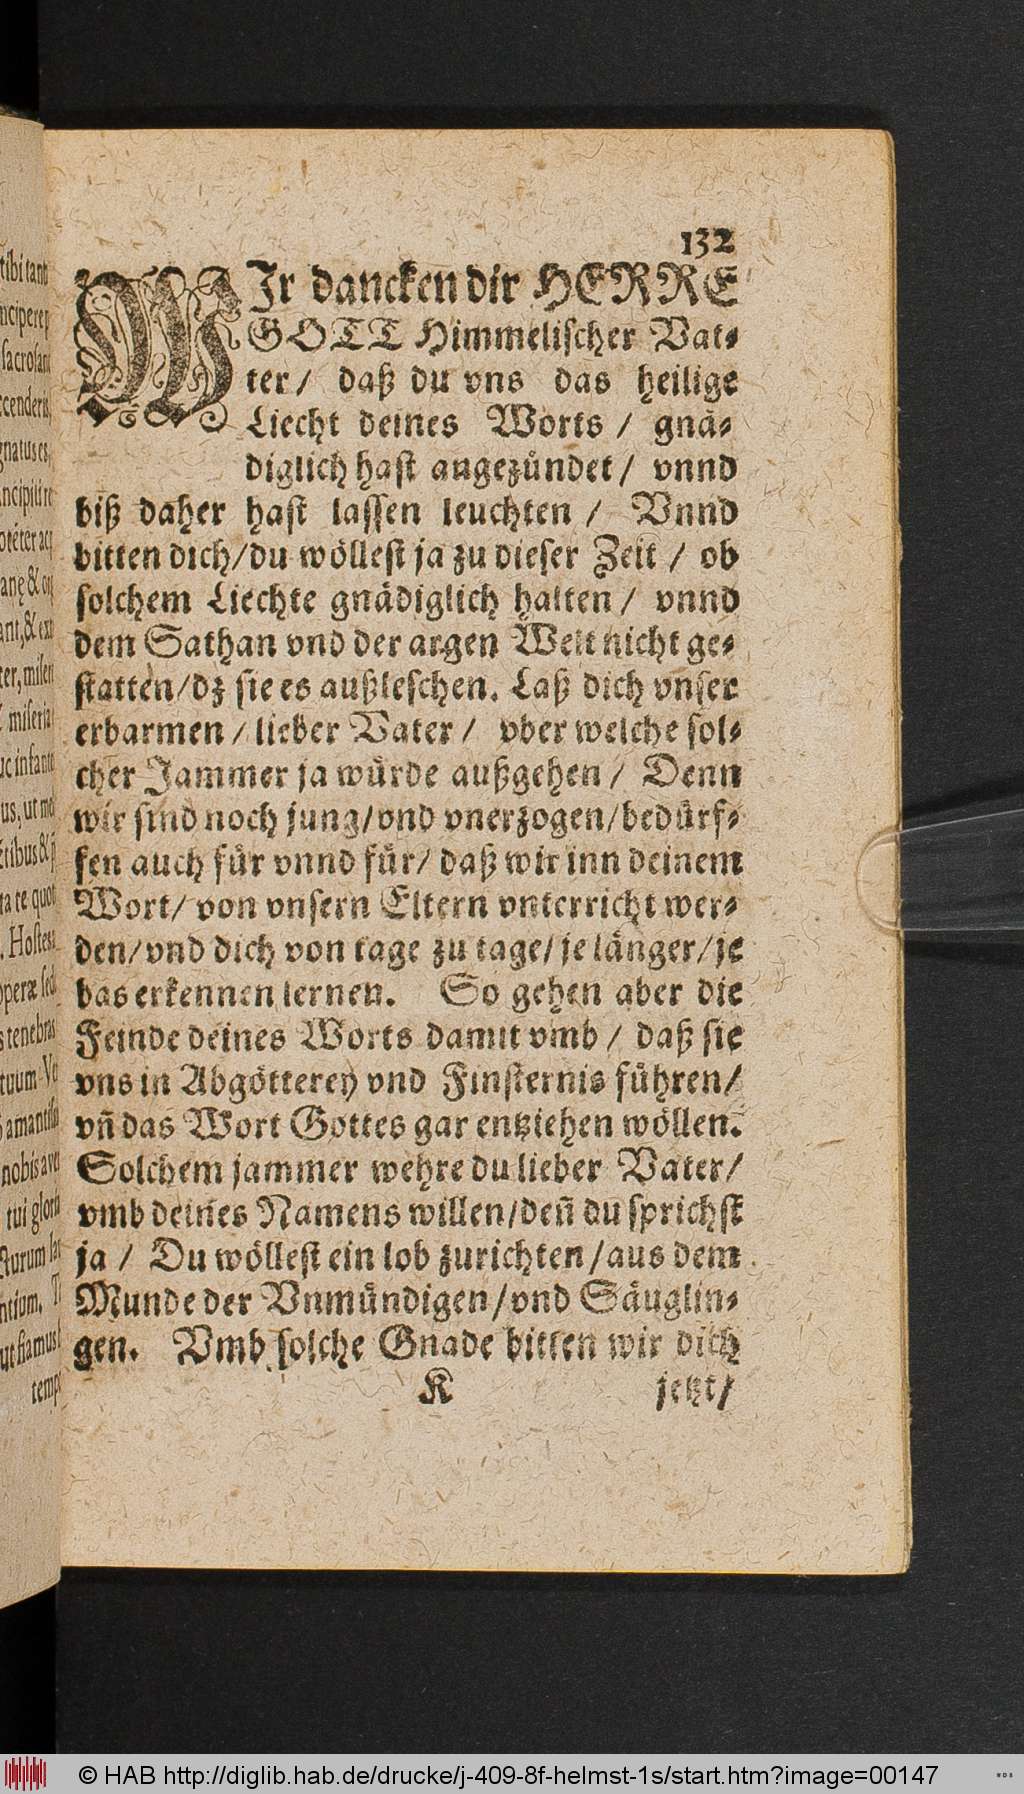 132
WIr dancken dir HERRE
GOTT Himmelischer Vat-
ter/ daß du vns das heilige
Liecht deines Worts / gnä-
diglich hast angezündet/ vnnd
biß daher hast lassen leuchten / Vnnd
bitten dich/du wöllest ja zu dieser Zeit / ob
solchem Liechte gnädiglich halten/ vnnd
dem Sathan vnd der argen Welt nicht ge-
statten/dz sie es außleschen. Laß dich vnser
erbarmen / lieber Vater / vber welche sol-
cher Jammer ja würde außgehen / Denn
wir sind noch jung/vnd vnerzogen/bedürf-
fen auch für vnnd für/ daß wir inn deinem
Wort/ von vnsern Eltern vnterricht wer-
den/vnd dich von tage zu tage/ je länger/je
bas erkennen lernen. So gehen aber die
Feinde deines Worts damit vmb / daß sie
vns in Abgötterey vnd Finsternis führen/
vñ das Wort Gottes gar entziehen wöllen.
Solchem jammer wehre du lieber Vater/
vmb deines Namens willen/deñ du sprichst
ja / Du wöllest ein lob zurichten /aus dem
Munde der Vnmündigen /vnd Säuglin-
gen. Vmb solche Gnade bitten wir dich
K jetzt/
tibi tant
sacrosan
gnatus es,
ant, & ex
ter, miseri
miseria
us, ut me
ta te quot
. Hostes
s tenebras
tuum
amantis
nobis ave
tui gloria
ntium.
ut fiamus
temp
© HAB http://diglib.hab.de/drucke/j-409-8f-helmst-1s/start.htm?image=00147